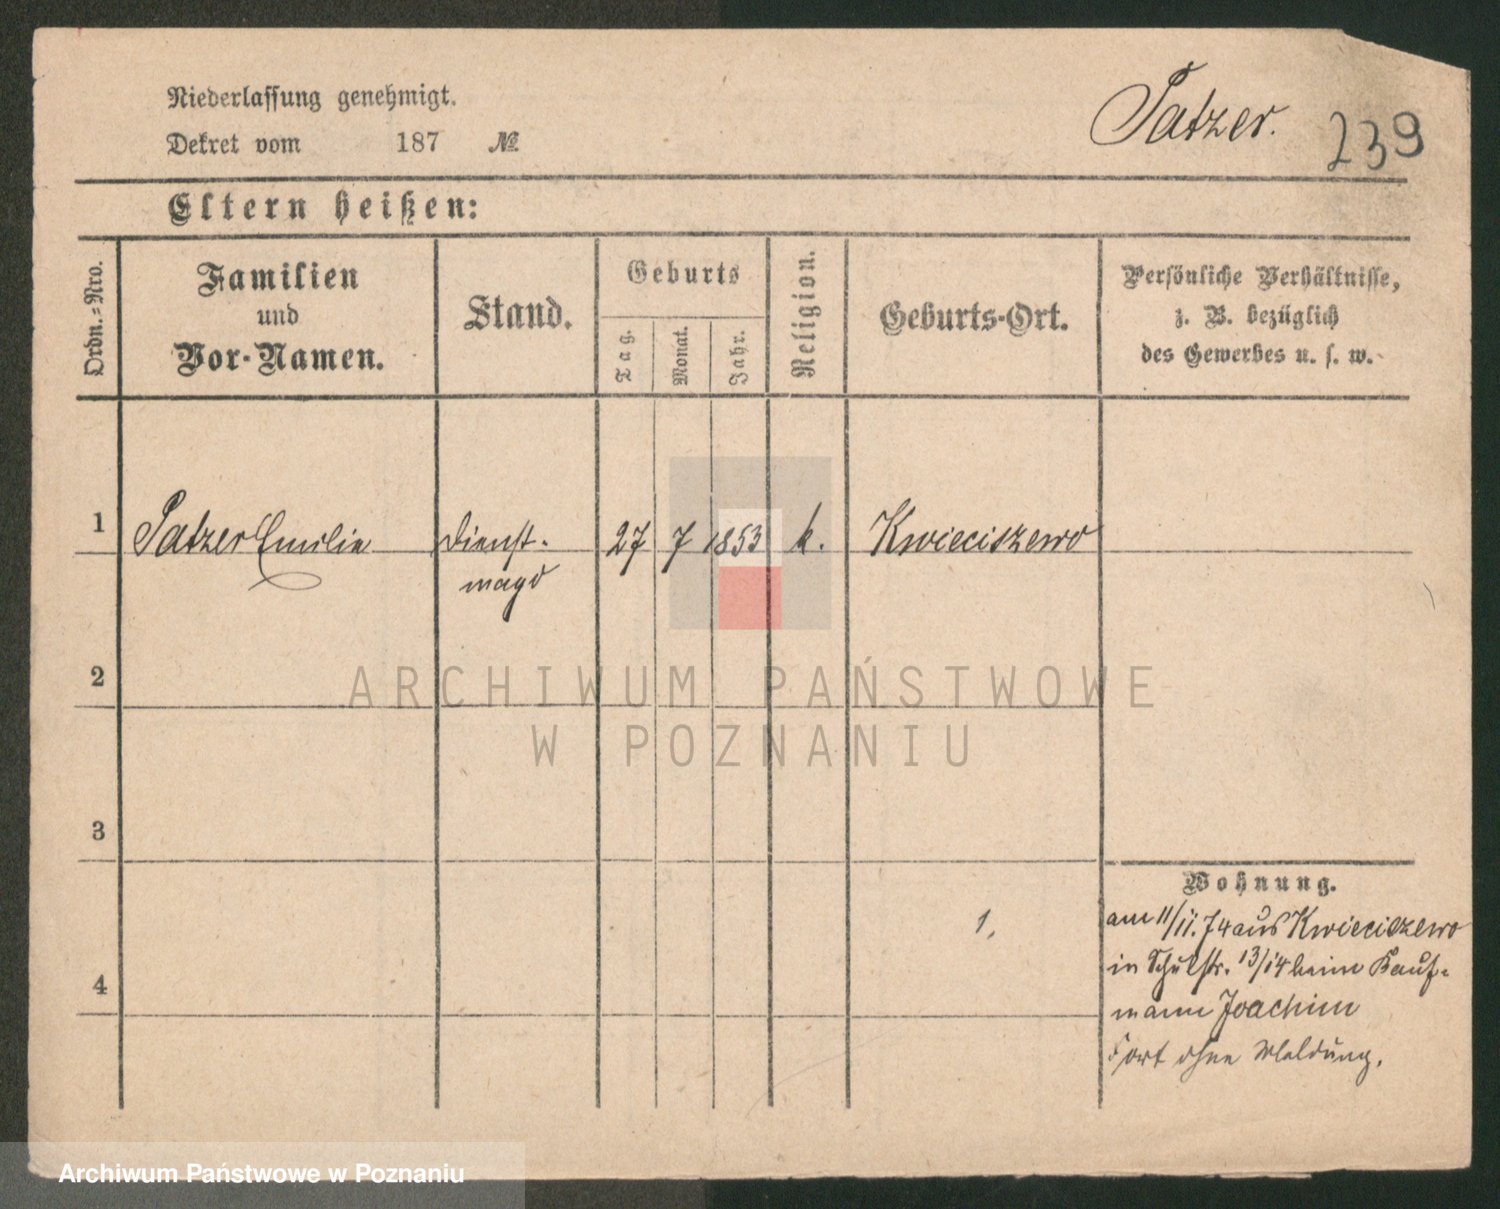 Niederlassung genehmigt.
Dekret vom 187 №
Patzer.
239
Eltern heißen:
Ordn.-Nro.
Familien
und
Vor-Namen.
Stand.
Geburts
Tag.
Monat.
Jahr.
Religion.
Geburts-Ort.
Persönliche Verhältnisse,
z. B. bezüglich
des Gewerbes u. s. w.
1 Patzer Emilie Dienst- 27 7 1853 k. Kwieciszewo
magd
2
3
4
ARCHIWUM PAŃSTWOWE
W POZNANIU
1.
Wohnung.
am 11/11.74 aus Kwieciszewo
in Schulstr. 13/14 beim Kauf-
mann Joachim
Fort ohne Meldung.
Archiwum Państwowe w Poznaniu